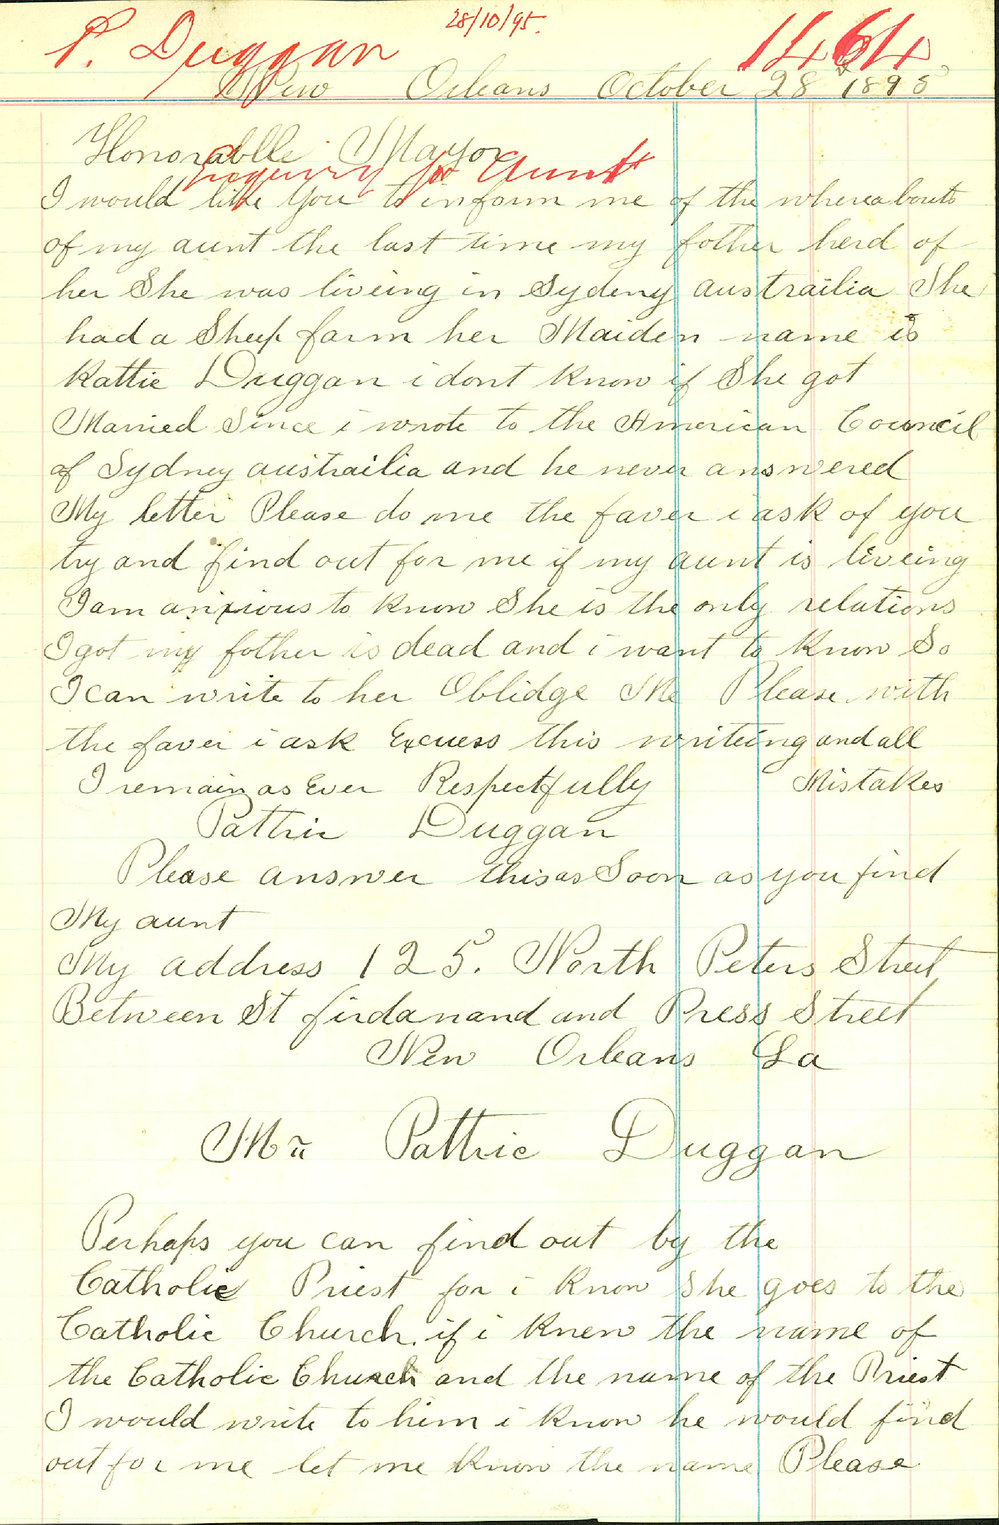 28/10/95.
P. Duggan 1464
New Orleans October 28 1895
Honorablle Mayor
Enquiry for Aunt
I would like you to inform me of the whereabouts
of my aunt the last time my father herd of
her She was liveing in Sydeny austrailia She
had a Sheep farm her Maiden name is
Kattie Duggan i dont know if She got
Married Since i wrote to the American Council
of Sydney austrailia and he never answered
My letter Please do me the faver i ask of you
try and find out for me if my aunt is liveing
I am anxious to know She is the only relations
I got my father is dead and i want to know So
I can write to her Oblidge Me Please with
the faver i ask Excuess this writeing and all
I remain as Ever Respectfully Mistakes
Pattric Duggan
Please answer this as Soon as you find
My aunt
My address 125. North Peters Street
Between St firdanand and Press Street
New Orleans La
Mr Pattric Duggan
Perhaps you can find out by the
Catholic Priest for i know She goes to the
Catholic Church. if i knew the name of
the Catholic Church and the name of the Priest
I would write to him i know he would find
out for me let me know the name Please